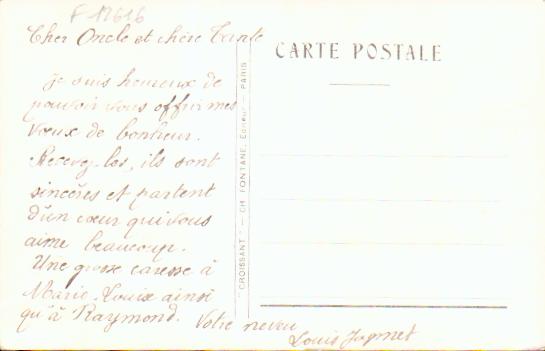 F 12616
Cher Oncle et chère Tante
je suis heureux de
pouvoir vous offrir mes
vœux de bonheur.
Recevez-les, ils sont
sincères et partent
d'un cœur qui vous
aime beaucoup.
Une grosse caresse à
Marie-Louise ainsi
qu'à Raymond. Votre neveu
Louis
"CROISSANT" — CH. FONTANE, Editeur — PARIS
CARTE POSTALE